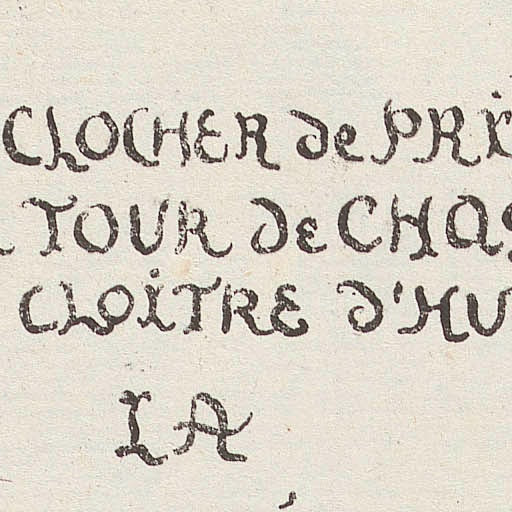 CLOCHER de PRI
TOUR de CHAS
CLOITRE d'HU
LA